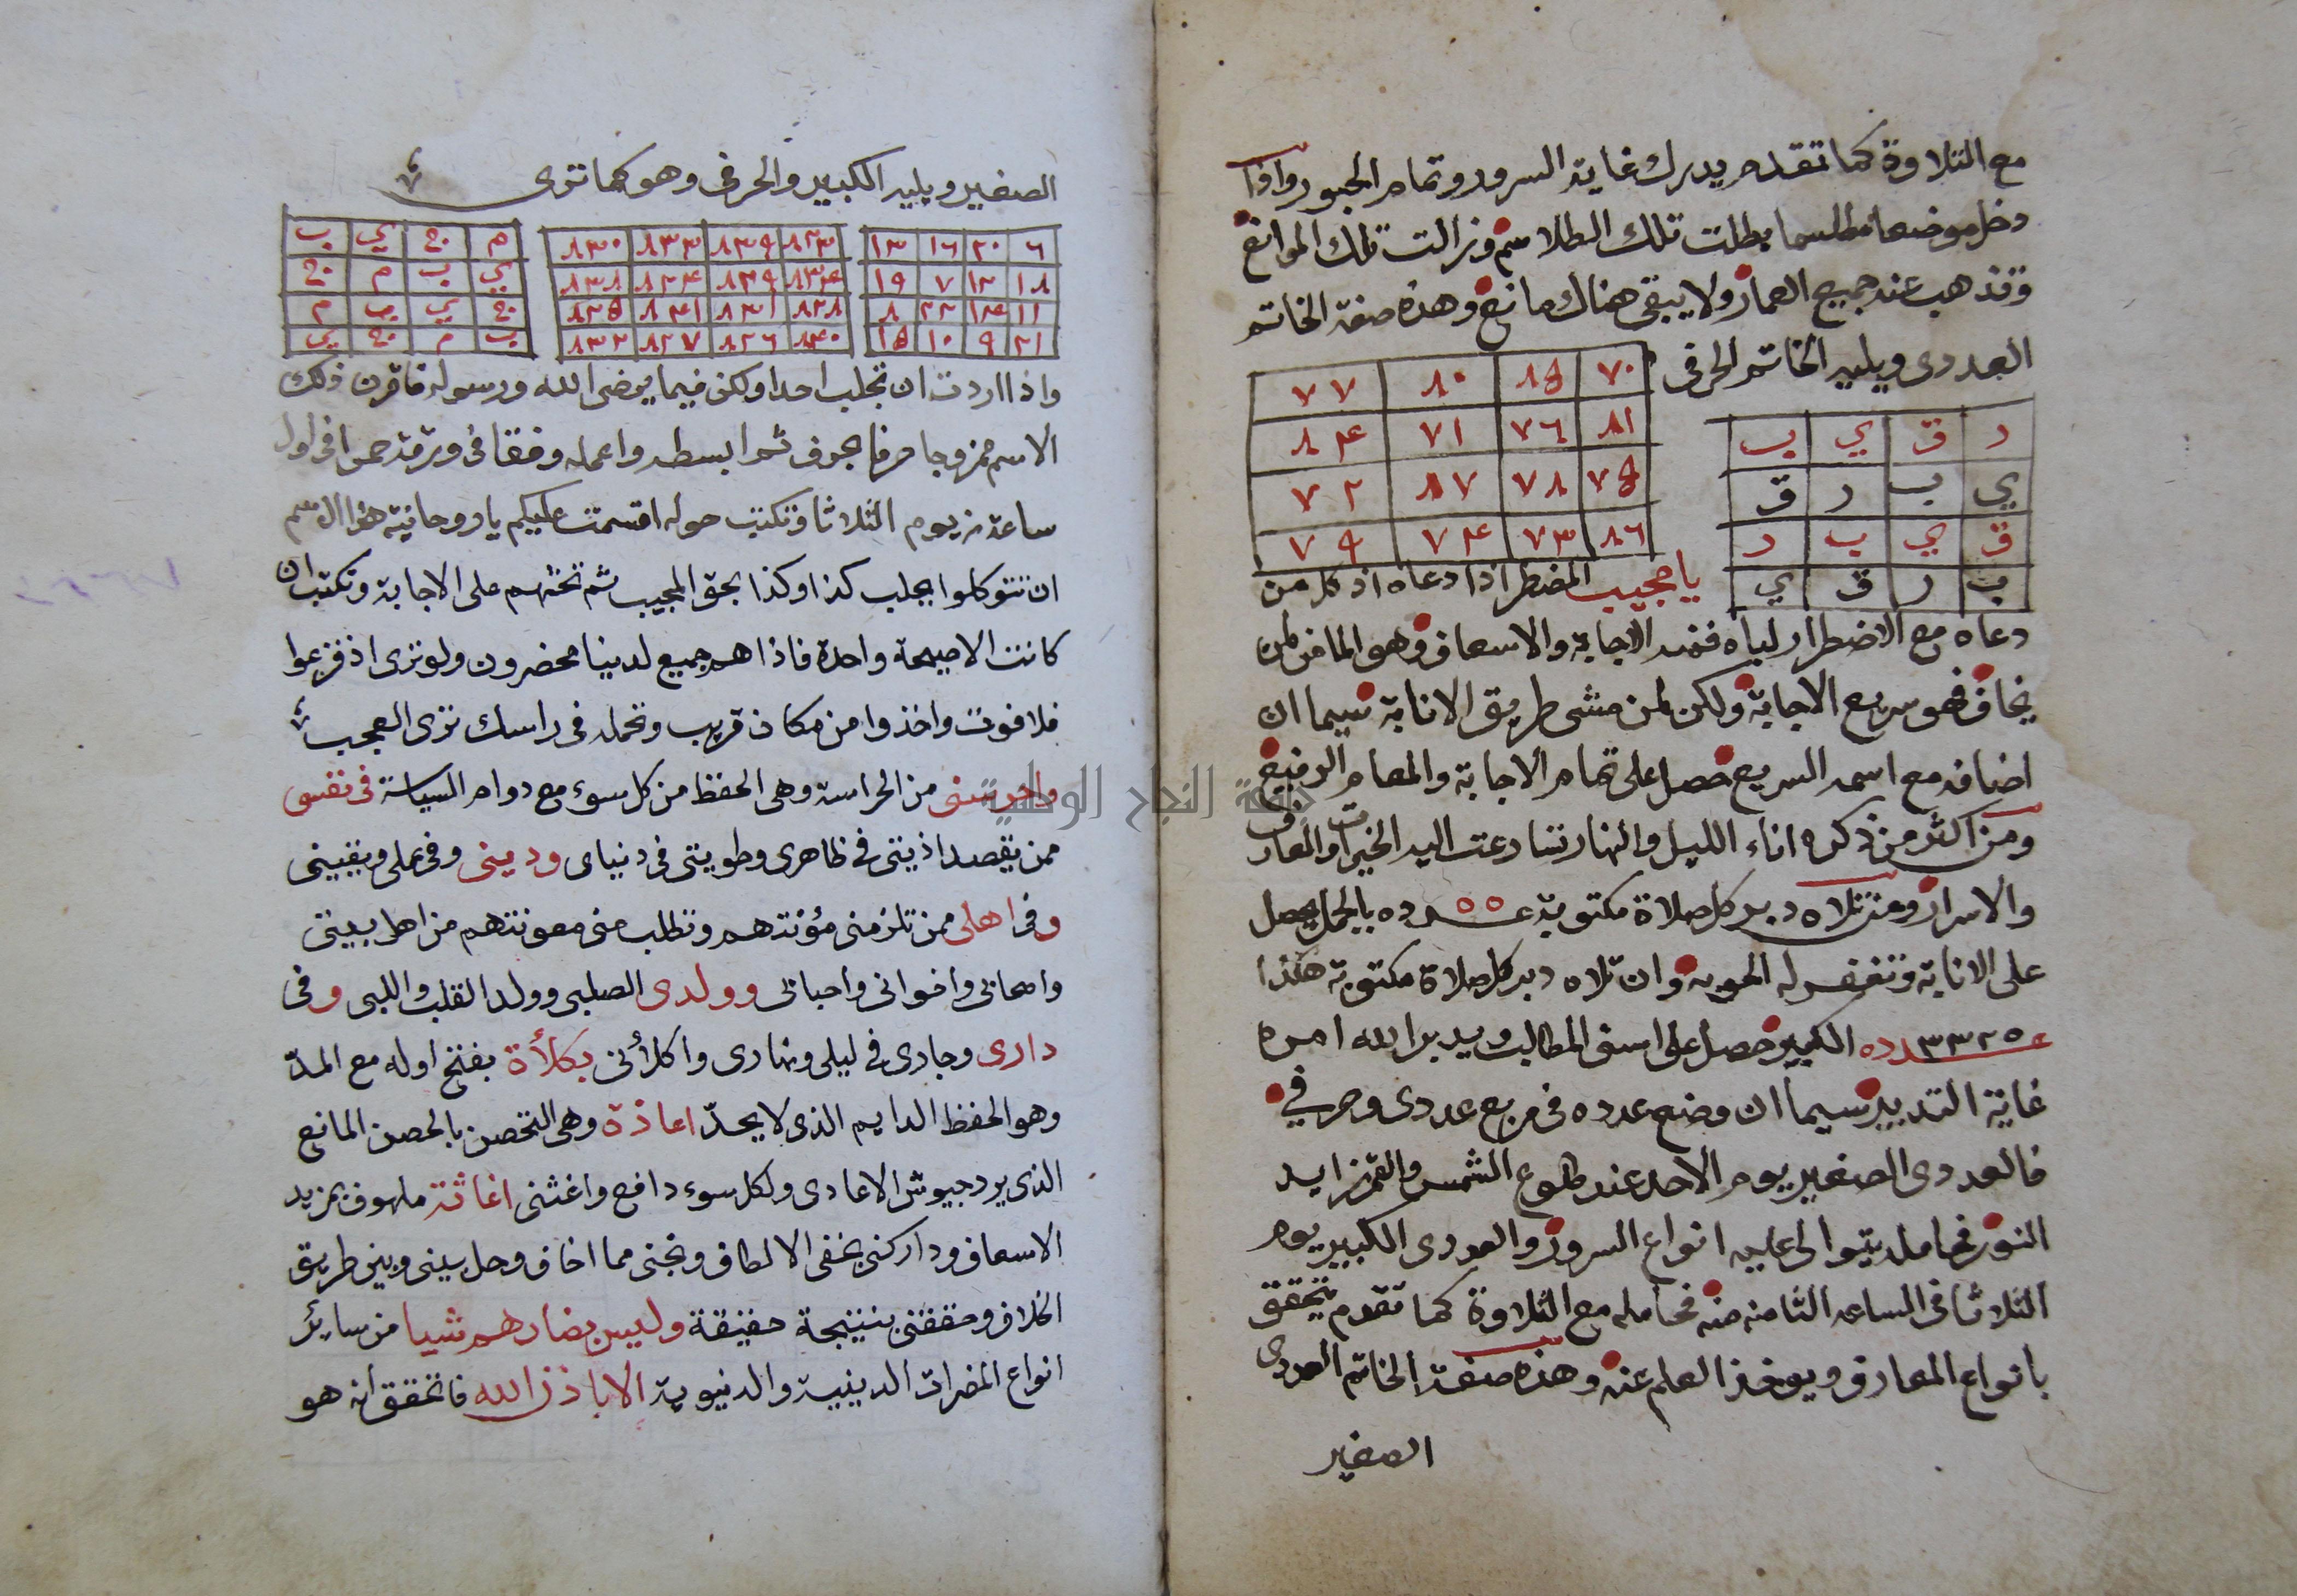 مع التلاوة كما تقدم يدرك غاية السرور وتمام الحبور واذا
دخل موضعا مطلسما بطلت تلك الطلاسم وزالت تلك الموانع
وتذهب عنه جميع العمار ولا يبقى هناك مانع وهذه صفة الخاتم
العددى ويليه الخاتم الحرفى
٧٠ ٨٥ ٨٠ ٧٧
٨١ ٧٦ ٧١ ٨٤
٧٥ ٧٨ ٨٧ ٧٢
٨٦ ٧٣ ٧٤ ٧٩
ر ق ي ب
ي ب ر ق
ق ي ب ر
ب ر ق ي
يا مجيب المضطر اذا دعاه اذ كل من
دعاه مع الاضطرار لباه فمنه الاجابة والاسعاف وهو الملمن
يخاف فهو سريع الاجابة ولكن لمن مشى طريق الانابة سيما ان
اضافه مع اسمه السريع حصل على تمام الاجابة والمقام الرفيع
ومن اكثر من ذكره اناء الليل والنهار تسارعت اليه الخيرات والمعارف
والاسرار ومن تلاه دبر كل صلاة مكتوبة عدده ٥٥ بالجمل يحصل
على الانابة وتغفر له الحوبه وان تلاه دبر كل صلاة مكتوبة هكذا
عدده ٣٣٢٥ الكبير حصل على اسنى المطالب ويدبر الله امره
غاية التدبير سيما ان وضع عدده فى مربع عددى وحرفي
فالعددى الصغير يوم الاحد عند طلوع الشمس والقمر زايد
النور فحامله يتوالى عليه انواع السرور والعددى الكبير يوم
الثلاثا فى الساعه الثامنه منه فحامله مع التلاوة كما تقدم يتحقق
بانواع المعارف ويوخذ العلم عنه وهذه صفة الخاتم العددى
الصغير
الصغير ويليه الكبير والحرفى وهو كما ترى
٦ ٢٠ ١٦ ١٣
١٨ ١٢ ٧ ١٩
١١ ١٤ ٢٢ ٨
٢١ ٩ ١٠ ١٥
٨٢٣ ٨٣٩ ٨٣٣ ٨٣٠
٨٣٤ ٨٢٩ ٨٢٤ ٨٣٨
٨٢٨ ٨٣١ ٨٤١ ٨٢٥
٨٤٠ ٨٢٦ ٨٢٧ ٨٣٢
م ج ي ب
ي ب م ج
ج ي ب م
ب م ج ي
واذا اردت ان تجلب احدا ولكن فيما يرضى الله ورسوله فاقرن ذلك
الاسم ممزوجا حرفا بحرف ثم ابسطه واعمله وفقا فى ورقة حمرا فى اول
ساعة من يوم الثلاثا وتكتب حوله اقسمت عليكم يا روحانية هذا الاسم
ان تتوكلوا بجلب كذا وكذا بحق المجيب ثم تحثهم على الاجابة وتكتب ان
كانت الا صيحة واحدة فاذا هم جميع لدينا محضرون ولو ترى اذ فزعوا
فلا فوت واخذوا من مكان قريب وتحمله فى راسك ترى العجب
واحرسنى من الحراسة وهى الحفظ من كل سوء مع دوام السياسة فى نفسى
ممن يقصد اذيتى فى ظاهرى وطويتى فى دنياى ودينى وفى عملى ويقينى
وفى اهلى ممن تلزمنى مؤنتهم وتطلب منى معونتهم من اهل بيتى
واصحابى واخوانى واحبابى وولدى الصلبى وولد القلب واللبى وفى
دارى وجارى فى ليلى ونهارى واكلأنى بكلأة بفتح اوله مع المدّ
وهو الحفظ الدايم الذى لا يحدّ اعاذة وهى التحصن بالحصن المانع
الذى يرد جيوش الاعادى ولكل سوء دافع واغثنى اغاثة ملهوف بمزيد
الاسعاف وداركنى بخفى الالطاف ونجنى مما اخاف وحل بينى وبين طريق
الخلاف وحققنى بنتيجة حقيقة وليس بضارهم شيا من سائر
انواع المضرات الدينية والدنيوية الا باذن الله فاتحقق انه هو
جامعة النجاح الوطنية